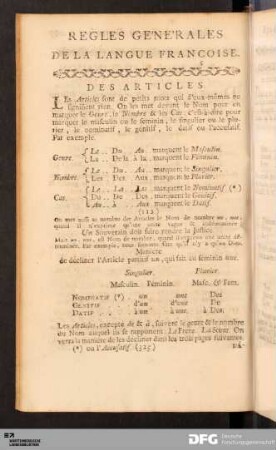 REGLES GENERALES
DE LA LANGUE FRANCOISE.
DES ARTICLES
LEs Articles sont de petits mots qui d'eux-mêmes ne
signifient rien. On les met devant le Nom pour en
marquer le Genre, le Nombre & les Cas, c'est-à-dire pour
marquer le masculin ou le feminin, le singulier ou le plu-
rier, le nominatif, le génitif, le datif ou l'accusatif.
Par exemple.
Genre. Le .. Du .. Au .. marquent le Masculin.
La .. De la .. à la .. marquent le Féminin.
Nombre. Le .. Du .. Au .. marquent le Singulier.
Les .. Des .. Aux .. marquent le Plurier.
Cas. Le .. La .. Les .. marquent le Nominatif (*)
Du .. De la .. Des .. marquent le Génitif.
Au .. à .. Aux .. marquent le Datif.
(112)
On met aussi au nombre des Articles le Nom de nombre un, une,
quand il
Un Souverain doit faire rendre la justice.
Mais un, une, est Nom de nombre, quand
Par exemple, nous sommes Cas qu'il n'y a qu'un Dieu.
Maniere
de décliner l'Article partitif un, qui fait au feminin une.
Singulier. Plurier.
Masculin. Féminin. Masc. & Fem.
NOMINATIF (*) un une Des
GENITIF d'un d'une De
DATIF à un à une. à Des.
Les Articles, excepté de & à, suivent le genre & le nombre
du Nom auquel ils se rapportent: Le Frere. La Sœur. On
verra la maniere de les décliner dans les trois pages suivantes
(*) ou l'Accusatif. (325)
DFG Deutsche
Forschungsgemeinschaft